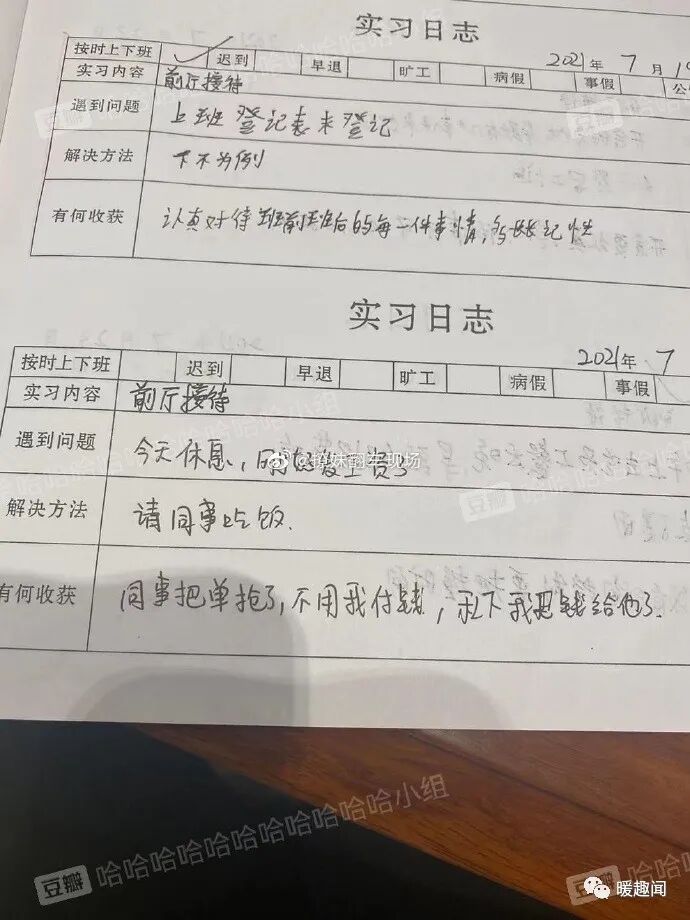 实习日志
2021年 7 月 19
按时上下班 ✓ 迟到 早退 旷工 病假 事假 公
实习内容 前厅接待
遇到问题 上班登记表未登记
解决方法 下不为例
有何收获 认真对待班前班后的每一件事情,多长长记性
实习日志
2021年 7
按时上下班 迟到 早退 旷工 病假 事假
实习内容 前厅接待
遇到问题 今天休息,发工资了
解决方法 请同事吃饭.
有何收获 同事把单抢了,不用我付钱,私下我把钱给他了.
豆瓣 哈哈哈哈哈哈哈哈哈哈小组
豆瓣
暖趣闻